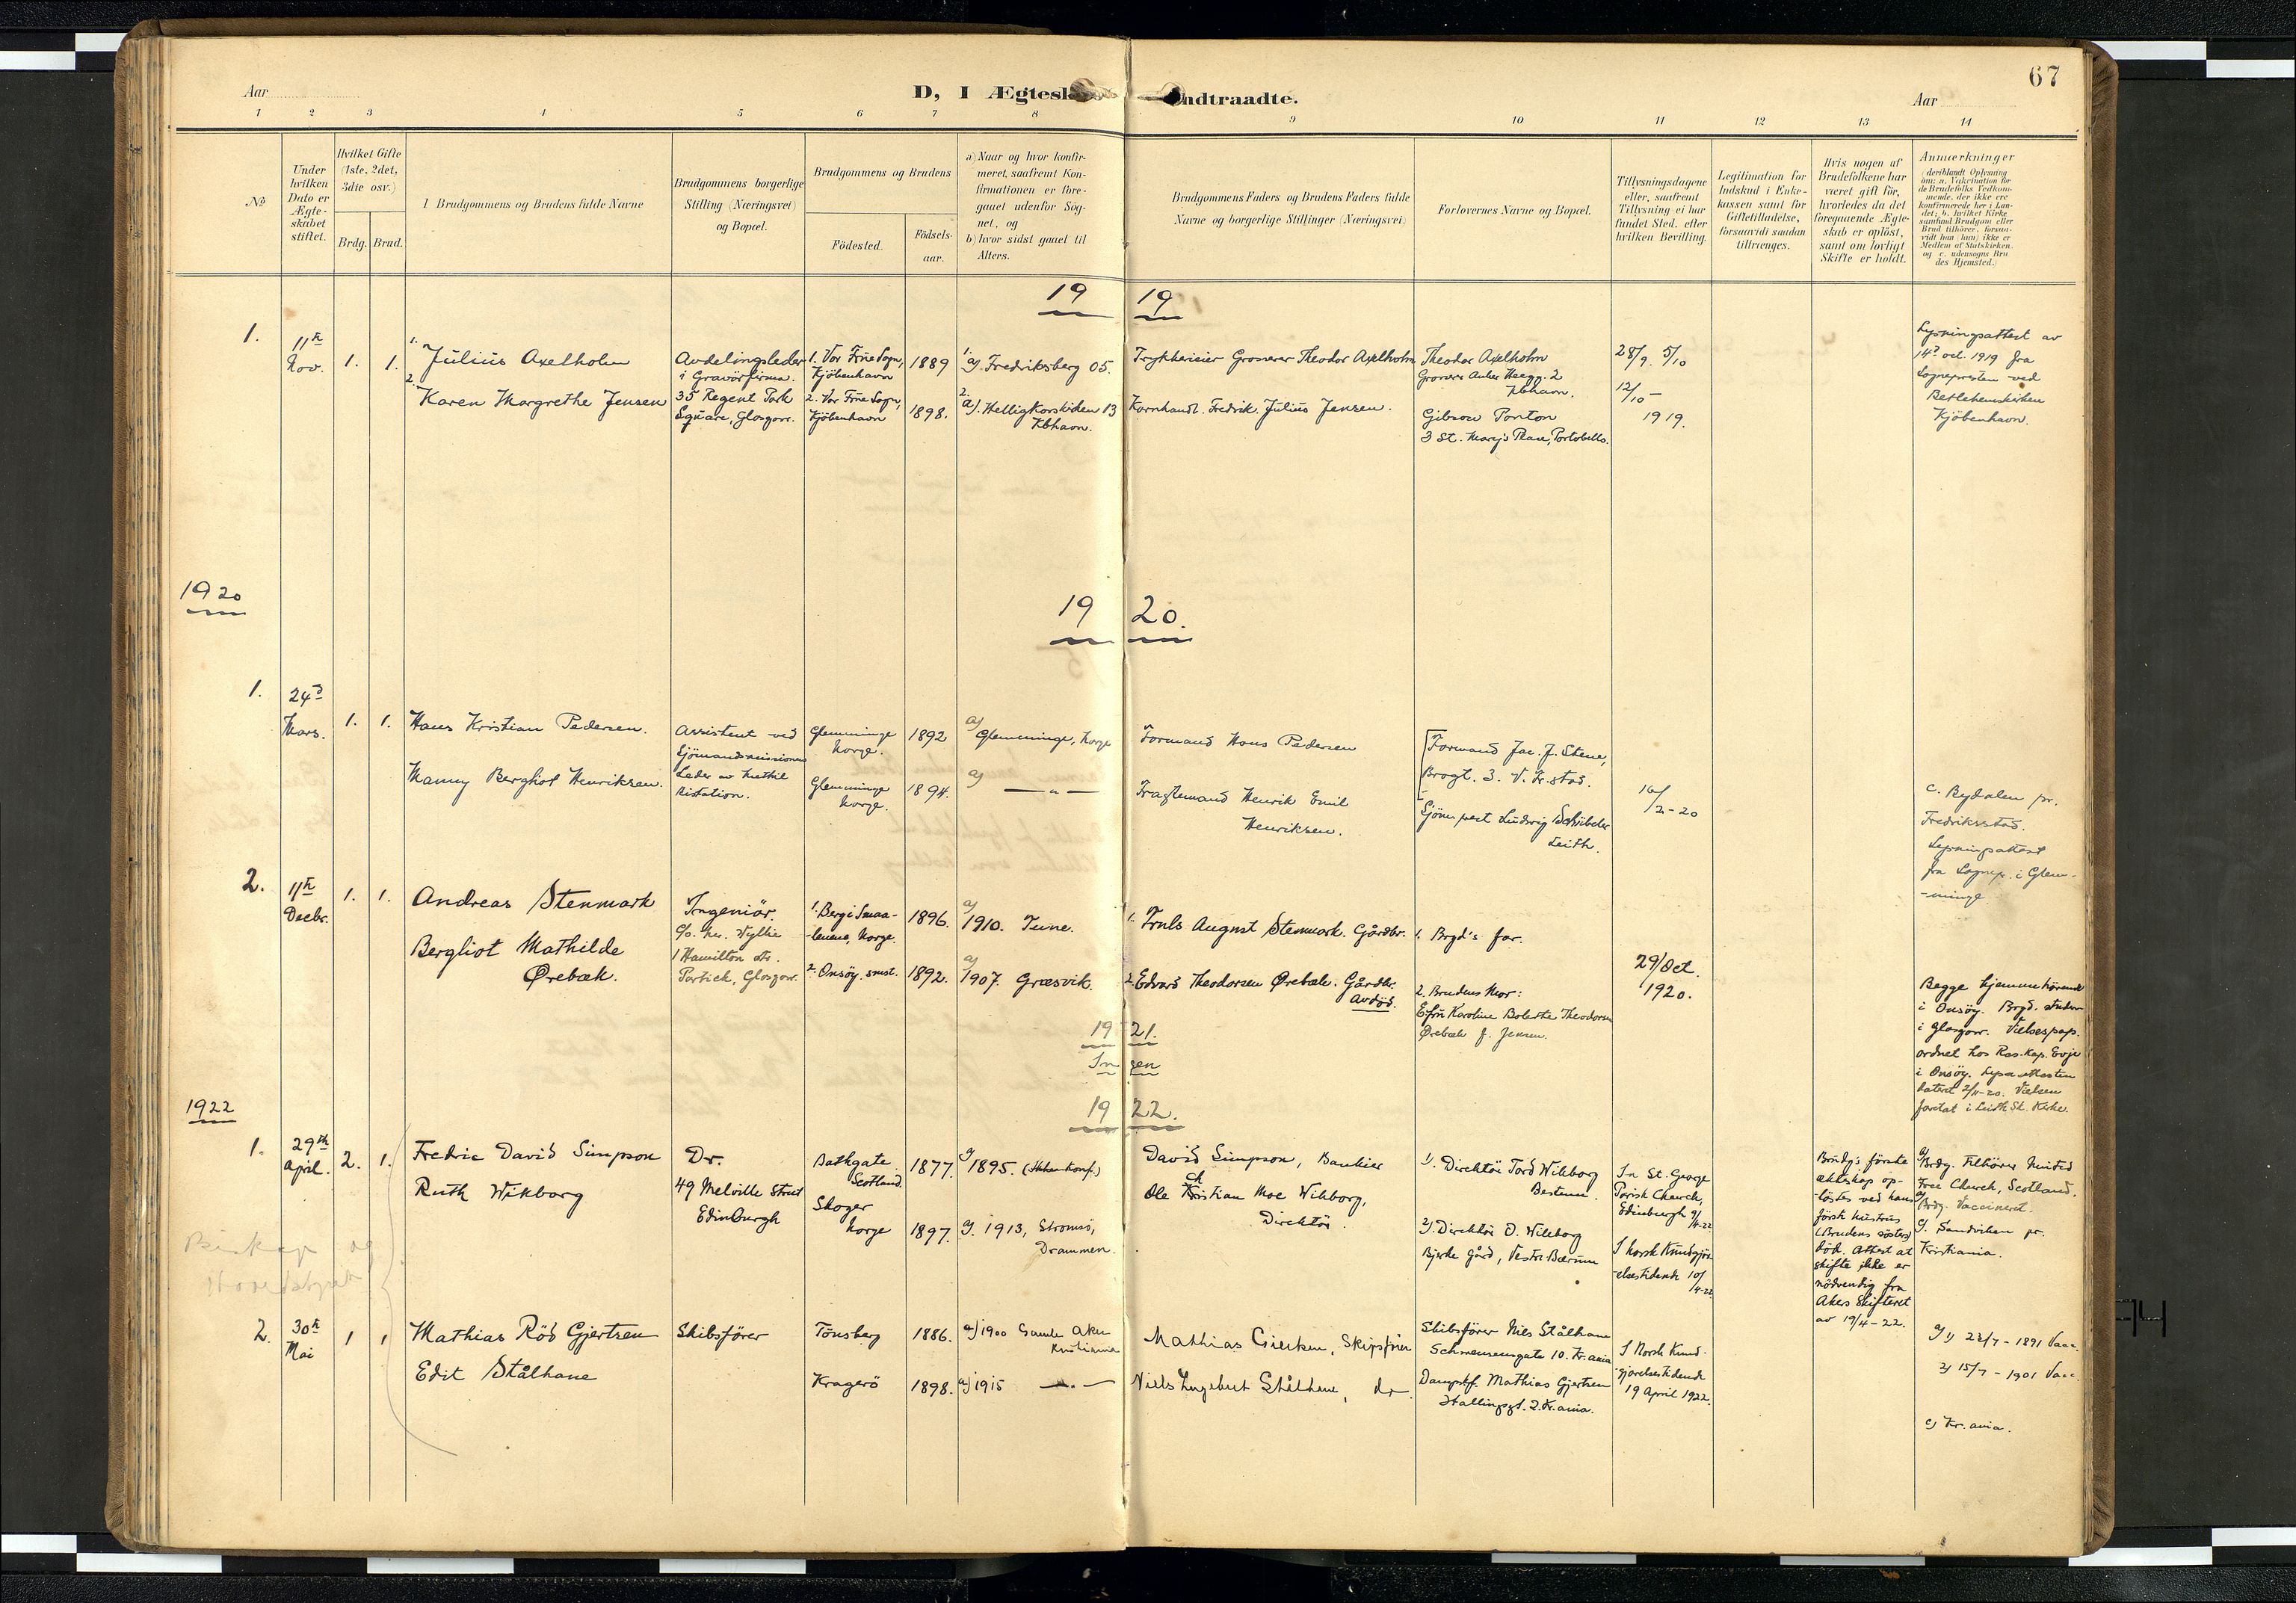 67
D, I Ægtesk
ndtraadte.
Aar
Aar
1 2 3 4 5 6 7 8 9 10 11 12 13 14
No
Under
hvilken
Dato er
Ægte-
skabet
stiftet.
Hvilket Gifte
(1ste, 2det,
3die osv.)
Brdg.
Brud.
1 Brudgommens og Brudens fulde Navne
Brudgommens borgerlige
Stilling (Næringsvei)
og Bopæl.
Brudgommens og Brudens
Födested.
Födsels-
aar.
a) Naar og hvor konfir-
meret, saafremt Kon-
firmationen er fore-
gaaet udenfor Sog-
net, og
b) hvor sidst gaaet til
Alters.
Brudgommens Faders og Brudens Faders fulde
Navne og borgerlige Stillinger (Næringsvei)
Forlovernes Navne og Bopæl.
Tillysningsdagene
eller, saafremt
Tillysning ei har
fundet Sted, efter
hvilken Bevilling.
Legitimation for
Indskud i Enke-
kassen samt for
Giftetilladelse,
forsaavidt saadan
tiltrænges.
Hvis nogen af
Brudefolkene har
været gift før,
hvorledes da det
foregaaende Ægte-
skab er oplöst,
samt om lovligt
Skifte er holdt.
Anmærkninger
(deriblandt Oplysning
om: a. Vakcination for
de Brudefolks Vedkom-
mende, der ikke ere
konfirmerede her i Lan-
det; b. hvilket Kirke
samfund Brudgom eller
Brud tilhörer, forsaa-
vidt han (hun) ikke er
Medlem af Statskirken,
og c. udensogns Bru
des Hjemsted.)
19 19
1.
11te
Nov.
1.
1.
1. Julius Axelholm
2. Karen Margrethe Jensen
Avdelingsleder
i Gravörfirma.
35 Regent Park
Square, Glasgow.
1. Vor Frue Sogn,
Kjöbenhavn
2. Vor Frue Sogn,
Kjöbenhavn
1889
1898.
1. a). Fredriksberg 05.
2. a). Helligkorskirken 13
Kbhavn.
Grosserer Theodor Axelholm
Kornhandl. Fredrik Julius Jensen.
Theodor Axelholm
2
Kbhavn.
Gibson Ponton
3 St. Mary's Place, Portobello.
28/9. 5/10
12/10 -
1919.
Lysningsattest av
14de oct. 1919 fra
Sognepresten ved
Betlehemskirken
Kjöbenhavn.
1920
19 20.
1.
24de
Mars.
1.
1.
Hans Kristian Pedersen.
Manny Bergliot Henriksen.
Assistent ved
Sjömandsmissionen
Leder av Methil
Station.
Glemminge
Norge.
Glemminge
Norge.
1892
1894.
a) Glemminge, Norge
a) — " —
Formand Hans Pedersen
Fragtemand Henrik Emil
Henriksen.
Formand Jac. J. Stene,
Brogt. 3. V. Fr.stad.
Sjöm.prest Ludvig Schübeler
Leith.
16/2-20
c. Rydalen pr.
Fredriksstad.
Lysningsattest
fra Sognepr. i Glem-
-minge
2.
11te
Decbr.
1.
1.
Andreas Stenmark
Bergliot Mathilde
Ørebæk.
Ingeniör.
c/o. Mr. Wyllie
1 Hamilton str.
Partick, Glasgow.
1. Berg i Smaa-
-lenene, Norge.
2. Onsöy. smst.
1896.
1892.
a) 1910. Tune.
a) 1907. Græsvik.
1. Truls August Stenmark. Gårdbr.
2. Edvard Theodorsen Ørebæk. Gårdbr.
Avdöd.
1. Brgd's far.
2. Brudens Mor:
Efru Karoline Bolette Theodorsen
Ørebæk f. Jensen.
29/Oct.
1920.
Begge hjemmehörende
i Onsöy. Brgd. studer
i Glasgow. Vielsespap.
ordnet hos Res.kap. Evje
i Onsöy. Lysn.attesten
dateret 2/11-20. Vielsen
foretat i Leith Sk. Kirke.
19 21.
Ingen
1922
19 22.
1.
29th
April.
2.
1.
Fredric David Simpson
Ruth Wikborg
Dr.
49 Melville Street
Edinburgh
Bathgate
Scotland.
Skoger
Norge
1877.
1897.
a) 1895. (Ikke konf.)
a). 1913, Strømsö,
Drammen.
David Simpson, Bankier
Ole Christian Moe Wikborg,
Direktör.
1). Direktör Tord Wikborg
Bestum.
2) Direktör O. Wikborg
Bjerke gård, Vestre Bærum
In St. George
Parish Church,
Edinburgh 9/4-22
I Norsk Kundgjör-
-elsestidende 10/4-22
Brudg's förste
ekteskap op-
-löstes ved hans
förste hustrus
(Brudens söster)
död. Attest at
skifte ikke er
nödvendig fra
Akers Skifteret
av 19/4-22.
Brdg. tilhörer United
Free Church, Scotland.
Brdg. Vaccineret.
c). Sandviken pr.
Kristiania.
Biskop og
2.
30te
Mai
1
1
Mathias Röd Gjertsen
Edit Stålhane
Skibsförer
Tönsberg
Kragerö
1886.
1898.
a) 1900 Gamle Aker
Kristiania
a) 1915 — " —
Mathias Gjertsen, Skipsförer
Niels Ingebret Stålhane, do.
Skibsförer Nils Stålhane
Schwensensgate 10. Kr.ania
Dampskf. Mathias Gjertsen
Hallingsgt. 2. Kr.ania.
I Norsk Kund-
gjörelsestidende
19 April 1922.
1) 22/7 - 1891 Vacc.
2) 15/7 - 1901 Vacc.
c) Kr.ania.